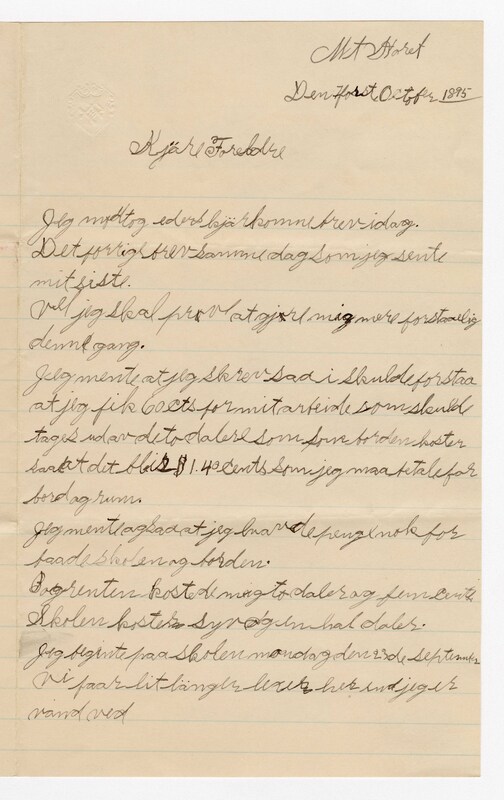 Mt Horet
Den 7orst October 1895
Kjäre Foreldre
Jeg modtog eders kjärkomne brev idag.
Det forrige brev samme dag som jeg sente
mit siste.
Vel jeg skal prøve at gjøre mig mere forstaaelig
denne gang.
Jeg mente at jeg skrev saa i skulde forstaa
at jeg fik 60 cts for mit arbeide som skulde
tages ud av de to dalere som borden koster
saa at det blir $1.40 cents som jeg maa betale for
bord og rum.
Jeg mente ogsaa at jeg havde penge nok for
baade skolen og borden.
renten kostede mig to daler og fem cents
Skolen koster syv og en hal daler.
Jeg begynte paa skolen mondag den 23de september
Vi faar lit länger lexer her end jeg er
vand ved